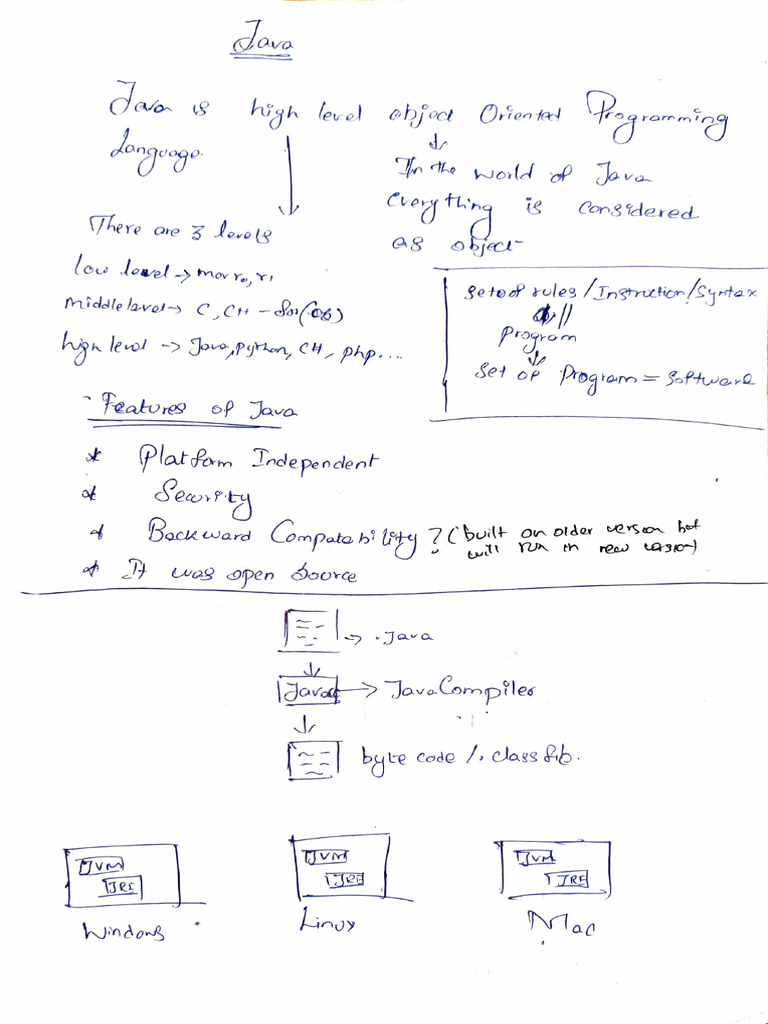 Java
Java is high level object Oriented Programming
Language.
In the world of Java
everything is considered
as object
There are 3 levels
low level → mov r0, r1
middle level → C, C++ - for (OS)
high level → Java, Python, C++, php....
set of rules / Instruction / Syntax
program
set of program = software
Features of Java
* Platform Independent
* Security
* Backward Compatability ? (built on older version but
will run in new version)
* It was open source
→ .Java
Javac → Java Compiler
byte code / .class file.
JVM JVM JVM
JRE JRE JRE
Windows Linux Mac